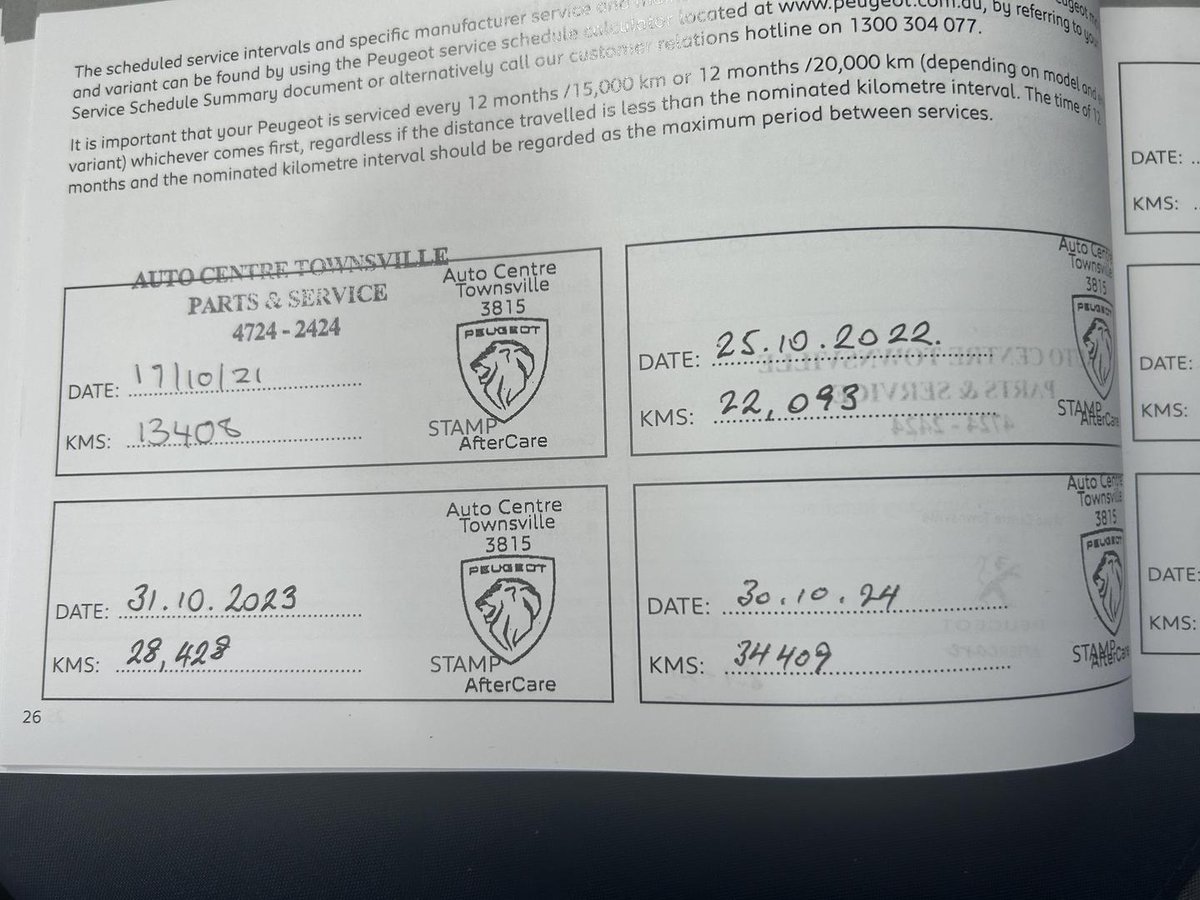 The scheduled service intervals and specific manufacturer service
and variant can be found by using the Peugeot service schedule calculator located at www.peugeot.com.au, by referring to you
Service Schedule Summary document or alternatively call our customer relations hotline on 1300 304 077.
It is important that your Peugeot is serviced every 12 months /15,000 km or 12 months /20,000 km (depending on model and
variant) whichever comes first, regardless if the distance travelled is less than the nominated kilometre interval. The time of 12
months and the nominated kilometre interval should be regarded as the maximum period between services.
AUTO CENTRE TOWNSVILLE
PARTS & SERVICE
4724 - 2424
Auto Centre
Townsville
3815
PEUGEOT
DATE: 19/10/21
KMS: 13408
STAMP
AfterCare
Auto Centre
Townsville
3815
PEUGEOT
DATE: 25.10.2022.
KMS: 22,093
STAMP
AfterCare
Auto Centre
Townsville
3815
PEUGEOT
DATE: 31.10.2023
KMS: 28,428
STAMP
AfterCare
Auto Centre
Townsville
3815
PEUGEOT
DATE: 30.10.24
KMS: 34409
STAMP
AfterCare
26
DATE:
KMS:
DATE:
KMS:
DATE:
KMS: